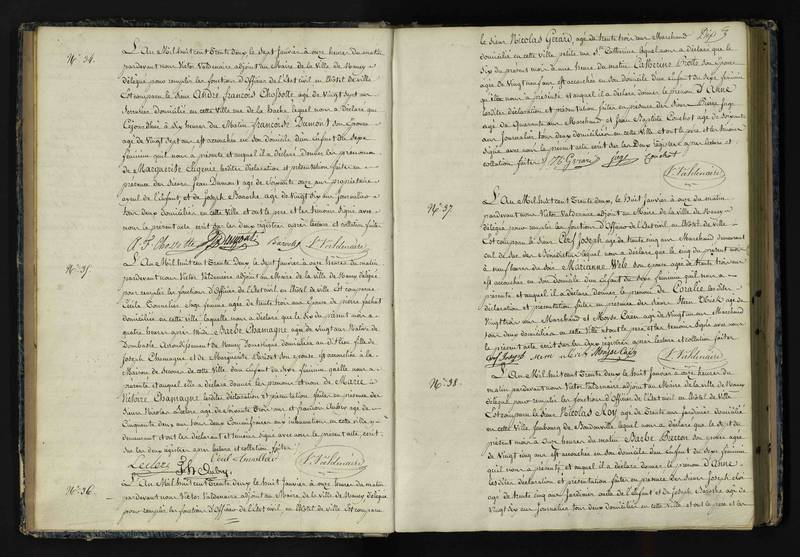 N.° 34.
L'An Mil huit cent Trente Deux le Sept Janvier à onze heures du matin
pardevant nous Victor Valdenaire adjoint au Maire de la Ville de Nancy
délégué pour remplir les fonctions d'Officier de l'Etat civil en hôtel de ville
Est comparu le Sieur André François Chossotte agé de Vingt sept ans
Serrurier domicilié en cette Ville rue de la hache lequel nous a déclaré que
Cejourd'hui à Six heures du Matin Françoise Dumont Son Epouse
agée de Vingt sept ans est accouchée en son domicile d'un Enfant du Sexe
féminin qu'il nous a présenté et auquel il a déclaré donner les prénoms
de Marguerite Eugénie lesdites déclaration et présentation faites en
présence des Sieurs Jean Dumont agé de Soixante onze ans propriétaire
ayeul de l'Enfant et de Joseph Baroche agé de Vingt Six ans Journalier
tous deux domiciliés en cette Ville et ont les père et les témoins Signé avec
nous le présent acte écrit sur les deux registres après lecture et collation faite
Dumont Valdenaire
N.° 35.
L'An Mil huit cent Trente Deux le Sept Janvier à onze heures du matin
pardevant nous Victor Valdenaire adjoint au Maire de la Ville de Nancy délégué
pour remplir les fonctions d'Officier de l'Etat civil en hôtel de Ville Est comparue
Cécile Sage femme agée de trente trois ans Epouse de pierre
domiciliée en cette ville laquelle nous a déclaré que le Six du présent mois à
quatre heures après midi Barbe Chamagne agée de Vingt ans Native de
Dombasle Arrondissement de Nancy Domestique domiciliée au dit lieu fille de
Joseph Chamagne et de Marguerite est accouchée à la
Maison de Secours de cette Ville d'un Enfant du Sexe féminin qu'elle nous a
présenté et auquel elle a déclaré donner les prénoms et nom de Marie
Victoire Chamagne lesdites déclaration et présentation faites en présence des
Sieurs Nicolas Leclerc agé de Soixante Trois ans et Aubry agé de
Cinquante deux ans tous deux Commissaires aux inhumations en cette ville y
demeurant et ont les déclarant et témoins Signé avec nous le présent acte écrit
sur les deux registres après lecture et collation faite
Leclerc Aubry Valdenaire
N.° 36.
L'An Mil huit cent Trente Deux le huit Janvier à onze heures du matin
pardevant nous Victor Valdenaire adjoint au Maire de la Ville de Nancy délégué
pour remplir les fonctions d'Officier de l'Etat civil en hôtel de Ville Est comparu
le Sieur Nicolas Gérard agé de trente trois ans Marchand
domicilié en cette Ville petite rue S.te Catherine lequel nous a déclaré que le
Six du présent mois à une heure du matin Catherine Son Epouse
agée de Vingt neuf ans est accouchée en son domicile d'un Enfant du Sexe féminin
qu'il nous a présenté et auquel il a déclaré donner le prénom d'Anne
lesdites déclaration et présentation faites en présence des Sieurs Pierre
agé de Quarante ans Marchand et Jean Baptiste Couchot agé de Soixante
ans Journalier tous deux domiciliés en cette Ville et ont le père et les témoins
Signé avec nous le présent acte écrit sur les deux registres après lecture et
collation faite
Gérard Couchot
Valdenaire
N.° 37.
L'An Mil huit cent Trente Deux, le huit Janvier à onze heures du matin
pardevant nous Victor Valdenaire adjoint au Maire de la Ville de Nancy
délégué pour remplir les fonctions d'Officier de l'Etat civil en hôtel de Ville
Est comparu le Sieur Joseph agé de trente cinq ans Marchand demeurant
cul de Sac des Bénédictins lequel nous a déclaré que le cinq du présent mois
à neuf heures du Soir Marianne Son épouse agée de trente trois ans
est accouchée en son domicile d'un Enfant du Sexe féminin qu'il nous a
présenté et auquel il a déclaré donner le prénom de Coralie lesdites
déclaration et présentation faites en présence des Sieurs agé de
Vingt trois ans Marchand et Moïse Caen agé de Vingt un ans Marchand
tous deux domiciliés en cette Ville et ont le père et les témoins Signé avec nous
le présent acte écrit sur les deux registres après lecture et collation faite
Joseph Valdenaire
N.° 38.
L'An Mil huit cent Trente Deux le huit Janvier à onze heures du
matin pardevant nous Victor Valdenaire adjoint au Maire de la ville de Nancy
délégué pour remplir les fonctions d'Officier de l'Etat civil en hôtel de Ville
Est comparu le Sieur Nicolas Roy agé de Trente ans Jardinier domicilié
en cette Ville faubourg de Boudonville lequel nous a déclaré que le Sept du
présent mois à onze heures du matin Barbe Son épouse agée
de Vingt cinq ans est accouchée en son domicile d'un Enfant du Sexe féminin
qu'il nous a présenté et auquel il a déclaré donner le prénom d'Anne
lesdites déclaration et présentation faites en présence des Sieurs Joseph
agé de trente cinq ans Jardinier oncle de l'Enfant et de Joseph Baroche agé de
Vingt Six ans Journalier tous deux domiciliés en cette Ville et ont le père et les